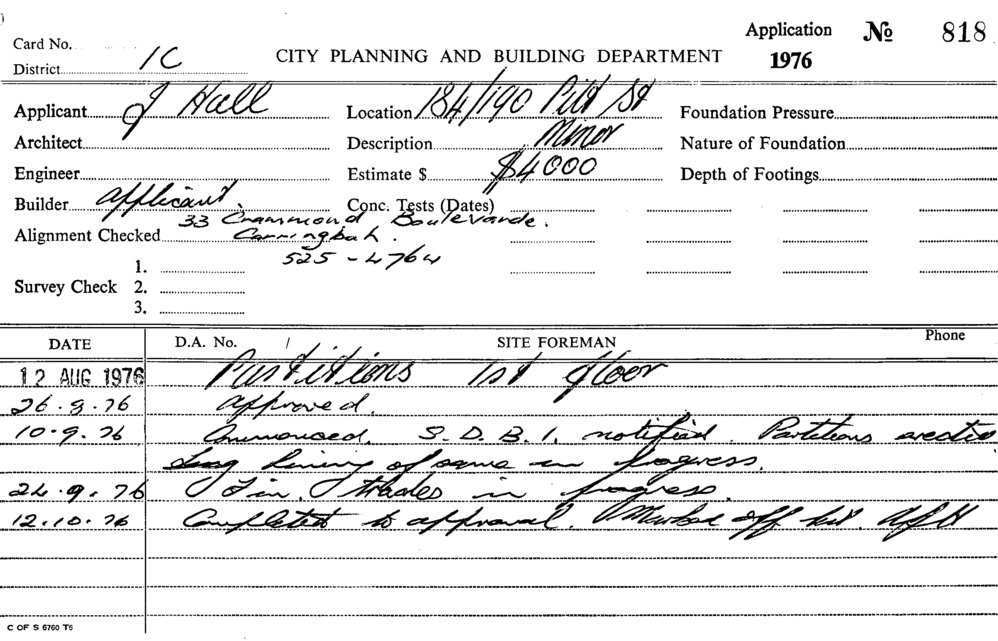 Application No 818
Card No.
CITY PLANNING AND BUILDING DEPARTMENT 1976
District 1C
Applicant J Hall Location 184/190 Pitt St Foundation Pressure
Architect Description Minor Nature of Foundation
Engineer Estimate $ $4000 Depth of Footings
Builder Applicant. Conc. Tests (Dates)
33 Crammond Boulevarde.
Alignment Checked Carringbah.
525-4764
1.
Survey Check 2.
3.
DATE D.A. No. / SITE FOREMAN Phone
12 AUG 1976 Partitions 1st floor
26.8.76 Approved.
10.9.76 Commenced. S.D.B.I. notified. Partitions erected
lining of same in progress.
24.9.76 Fin. trades in progress.
12.10.76 Completed to approval. Marked off
C OF S 6760 T6